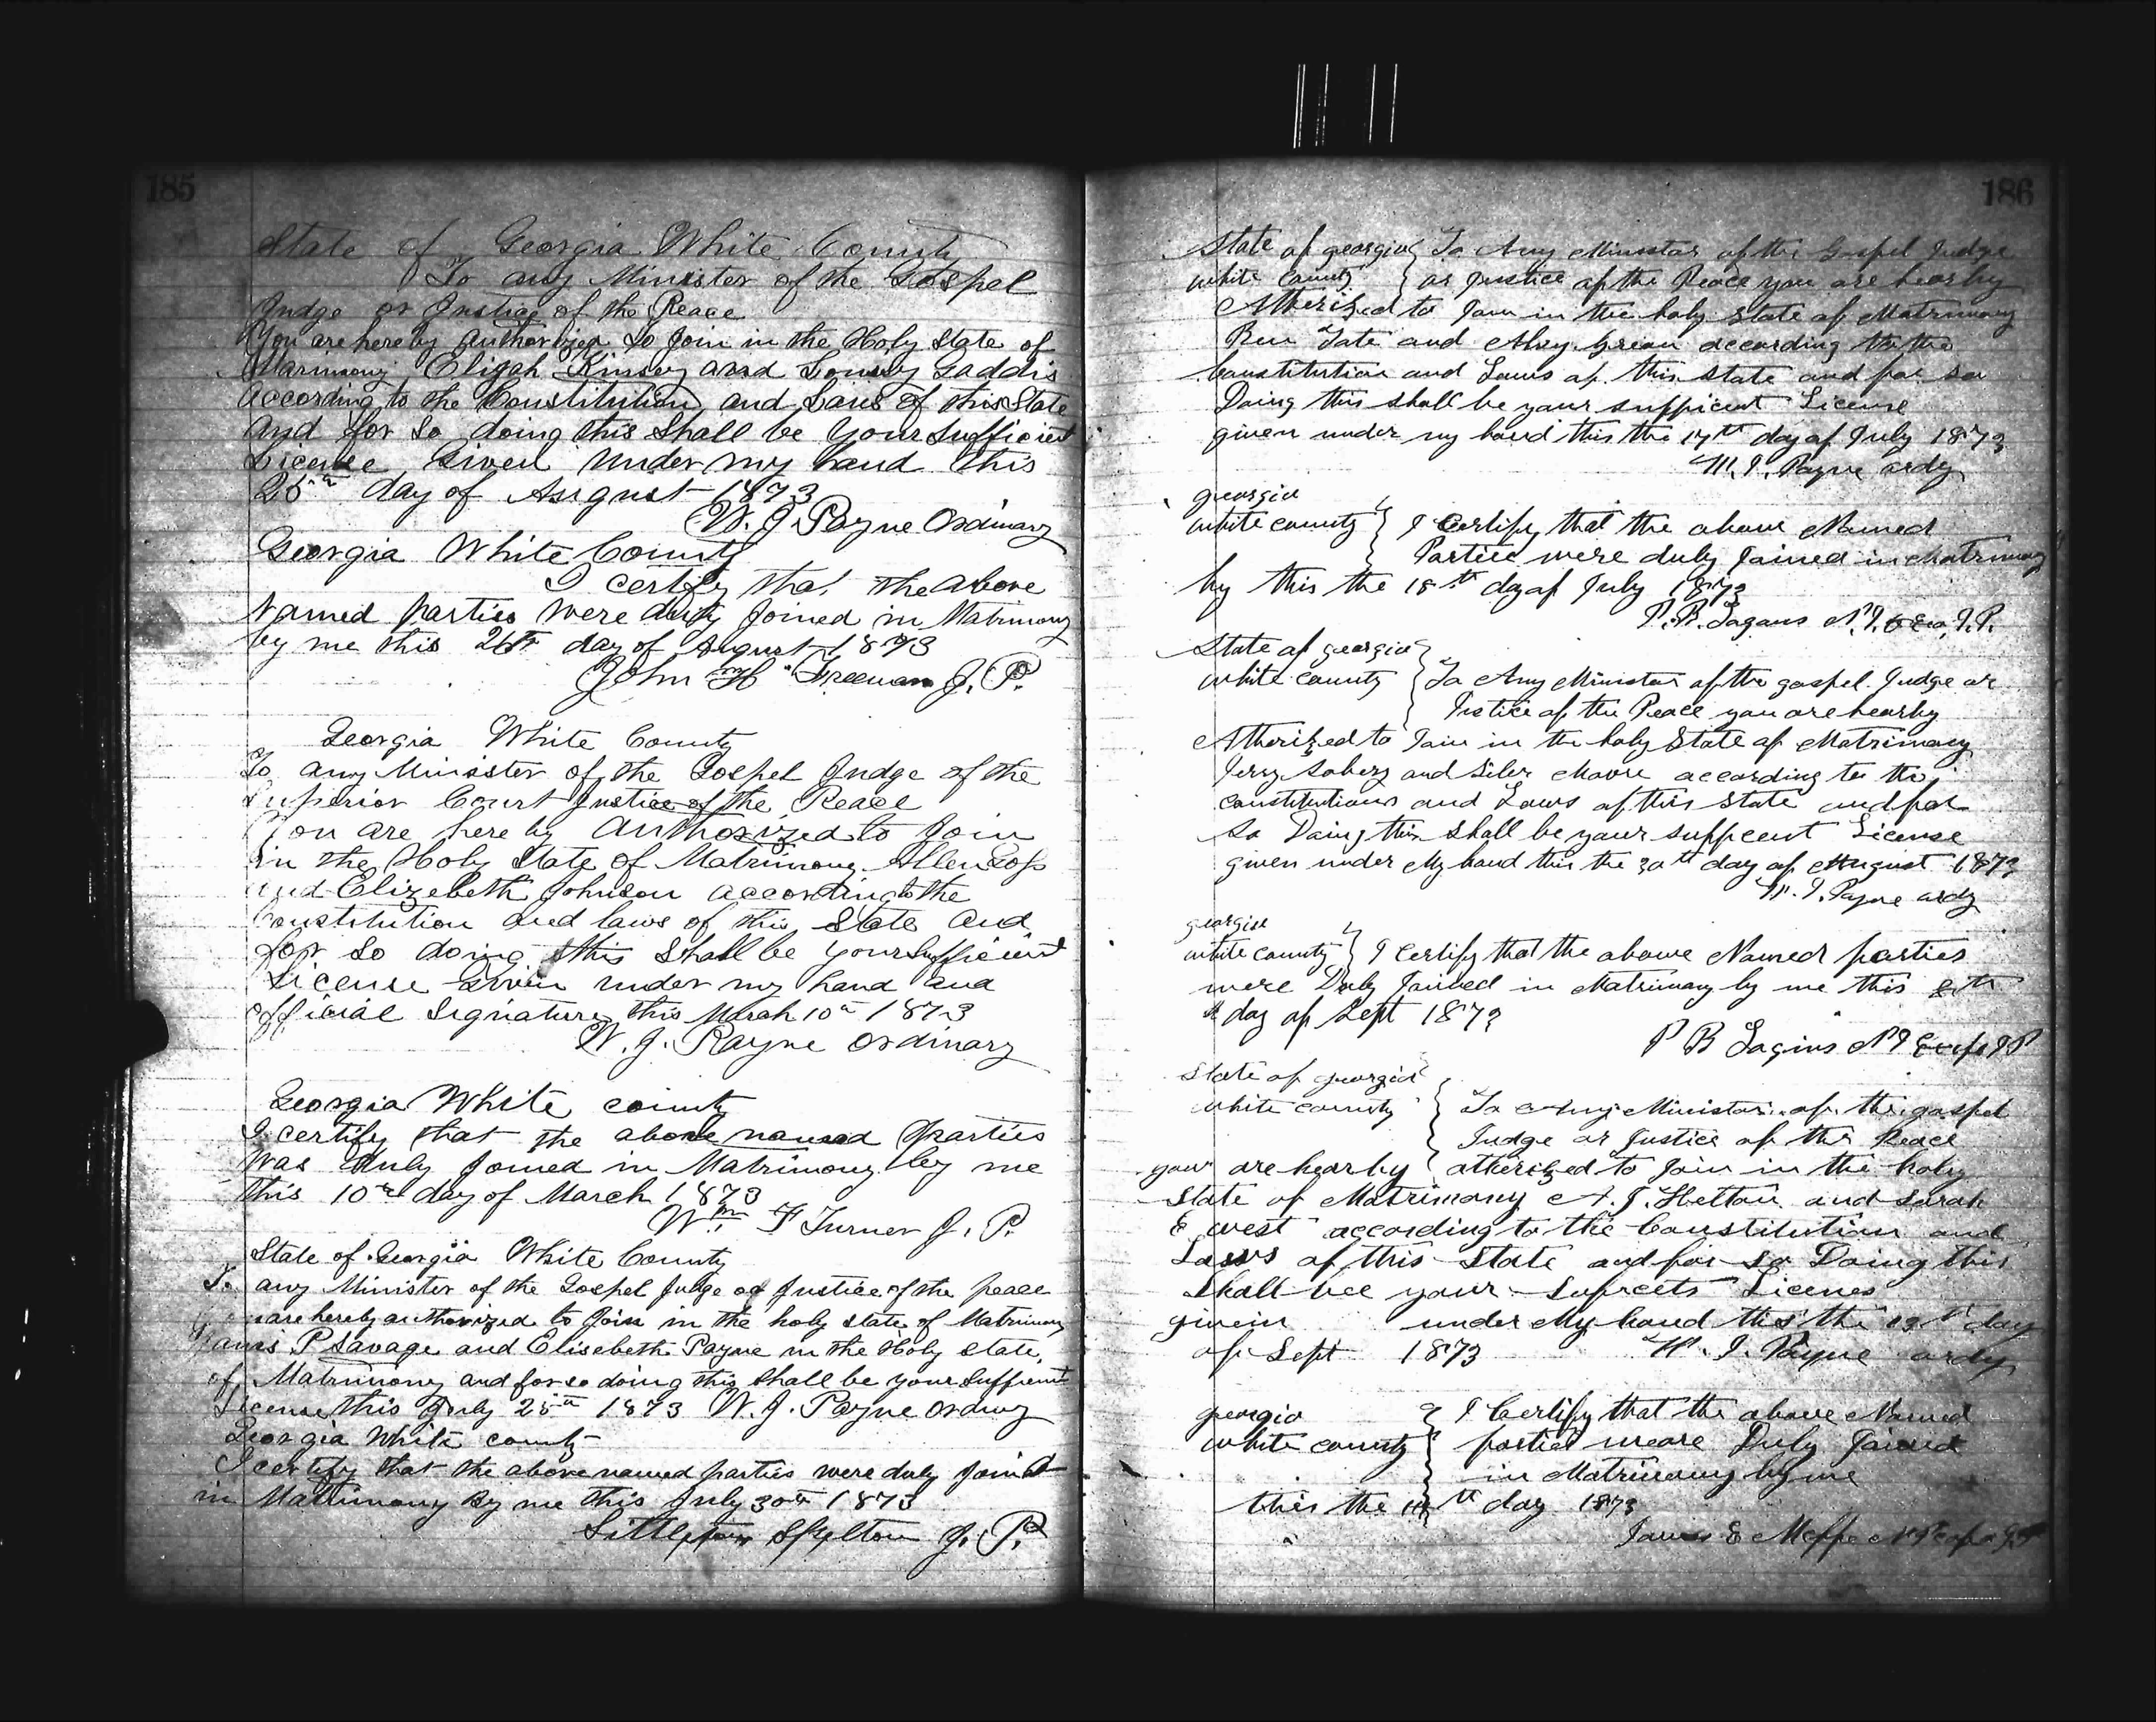 185
State of Georgia White County
To any Minister of the Gospel
Judge or Justice of the Peace
You are hereby Authorized to Join in the Holy State of
Marimony Eligah Kinsey and Gaddis
According to the Constitution and Laws of this State
And for So doing this Shall be Your Sufficient
License Given Under my hand this
25th day of August 1873
W. J. Payne Ordinary
Georgia White County
I certify that the above
Named parties were duly Joined in Matrimony
by me this 26th day of August 1873
John H Freeman J. P.
Georgia White County
To any Minister of the Gospel Judge of the
Superior Court Justice of the Peace
You are here by Authorized to Join
in the Holy State of Matrimony Allen Goss
and Elizebeth Johnson according to the
Constitution and laws of this State and
for so doing this Shall be your Sufficient
License Given under my hand and
official Signature this March 10th 1873
W. J. Payne Ordinary
Georgia White county
I certify that the above named parties
was duly Joined in Matrimony by me
this 10th day of March 1873
Wm F Turner J. P.
State of Georgia White County
To any Minister of the Gospel Judge or Justice of the peace
You are hereby authorized to Join in the holy state of Matrimony
P Savage and Elisebeth Payne in the Holy state
of Matrimony and for so doing this Shall be your Suffient
License this July 25th 1873 W. J. Payne Ordiny
Georgia White county
I certify that the above named parties were duly Joind
in Matrimony By me this July 30th 1873
Littleton Skelton J. P.
186
State of georgia } To Any Minister of the Gospel Judge
white County } or Justice of the Peace you are hearby
Atherized to Join in the holy State of Matrimony
Ben Tate and according to the
Constitution and Laws of this State and for so
Doing this shall be your sufficent License
given under my hand this the 17th day of July 1873
W. J. Payne ordy
georgia
white county } I Certify that the above Named
Parties were duly Joined in Matrimony
by this the 18th day of July 1873
P. B. J. P.
State of georgia
white county } To Any Minister of the gospel Judge or
Justice of the Peace you are hearby
Atherized to Join in the holy State of Matrimony
Jerry and Siler Moore according to the
constitutions and Laws of this State and for
So Doing this Shall be your suffecent License
given under My hand this the 30th day of August 1873
W. J. Payne ordy
georgia
white county } I Certify that the above Named parties
were Duly Joined in Matrimony by me this
day of Sept 1873
P B J P
State of georgia
white county } To Any Minister of the gospel
Judge or Justice of the Peace
your are hearby atherized to Join in the holy
State of Matrimony A. J. Helton and Sarah
E West according to the Constitution and
Laws of this State and for So Doing this
Shall bee your License
givein under My hand this the 13th day
of Sept 1873 W. J. Payne ordy
georgia } I Certify that the above Named
white county } parties weare Duly Joined
in Matrimony by me
this the 14th day 1873
James E